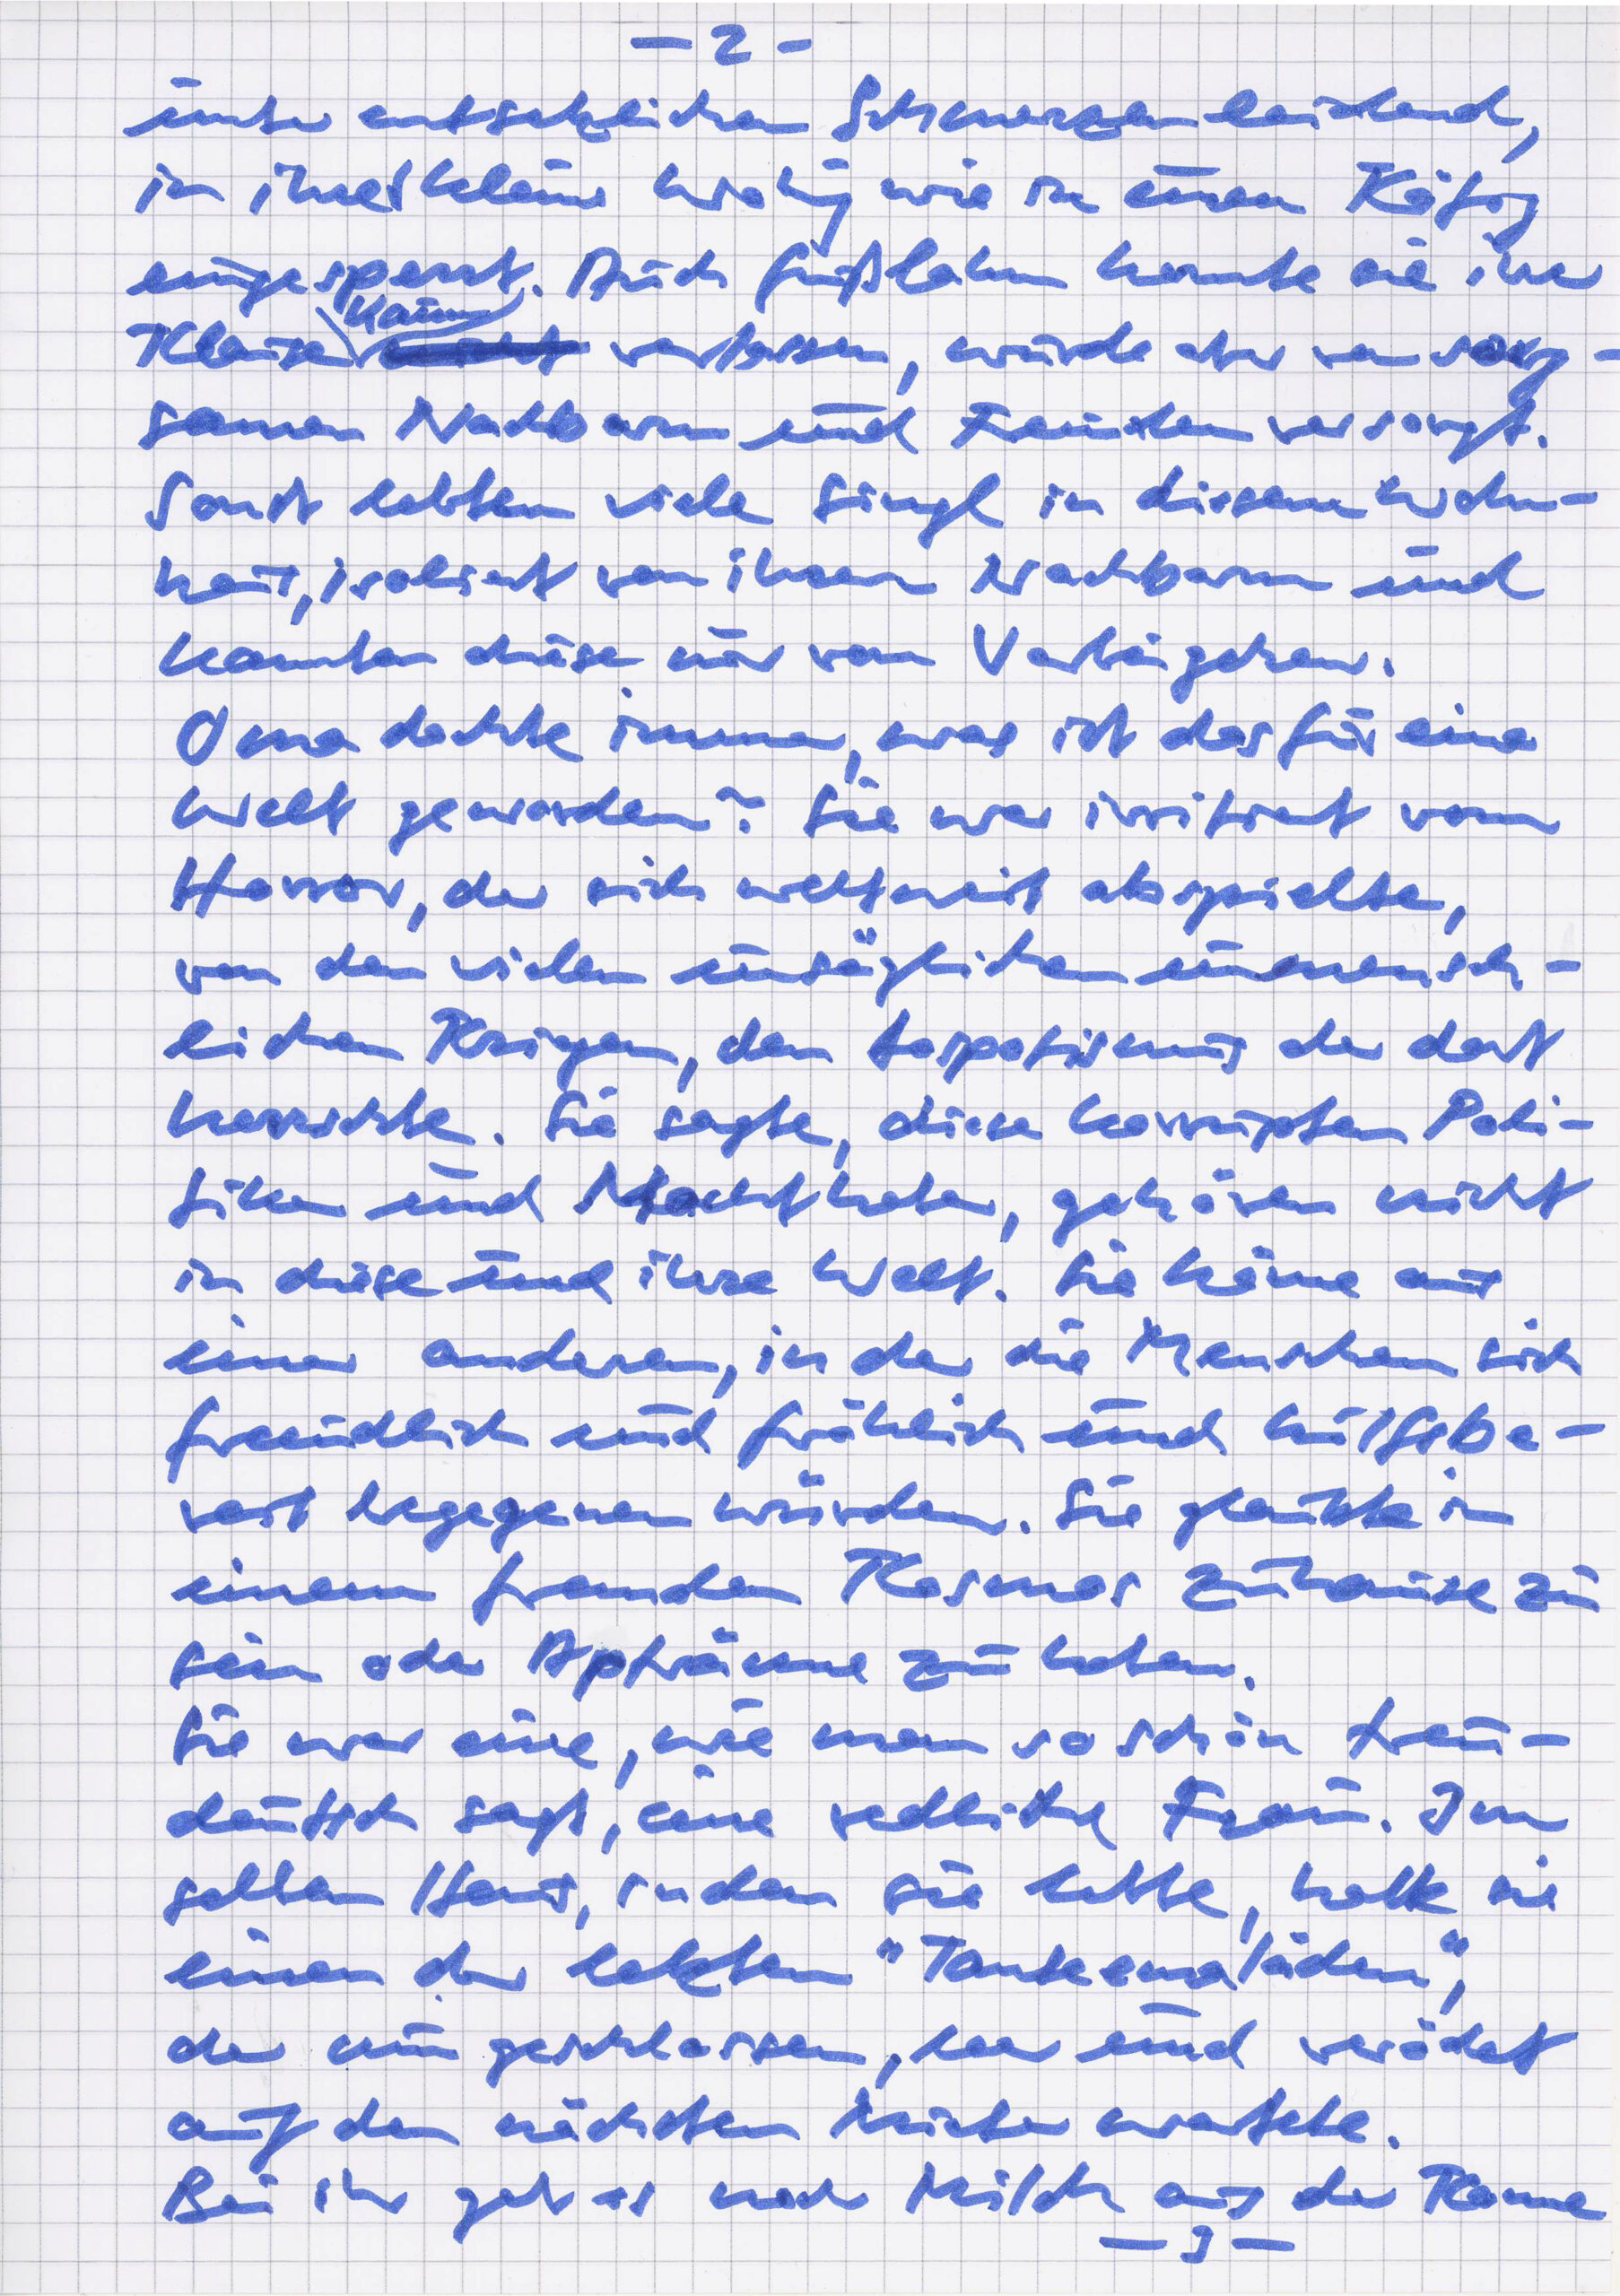 - 2 -
unter entsetzlichen Schmerzen leidend,
in ihrer kleinen Wohng wie in einen Käfig
eingesperrt. Auch fußlahm konnte sie ihre
Klause kaum verlassen, wurde aber von sorg-
samen Nachbarn und Freunden versorgt.
Sonst lebten viele Singl in diesem Wohn-
haus, isoliert von ihren Nachbarn und
kannten diese nur vom Vorbeigehen.
Oma dachte immer, was ist das für eine
Welt geworden? Sie war irritiert vom
Horror, der sich weltweit abspielte,
von den vielen unsäglichen unmensch-
lichen Kriegen, den Despotismus der dort
herrschte. Sie sagte, diese korrupten Poli-
tiker und Machthaber, gehören nicht
in diese und ihre Welt. Sie käme aus
einer anderen, in der die Menschen sich
freundlich und fröhlich und hilfsbe-
reit begegenen würden. Sie glaubte in
einem fremden Kosmos zuhause zu
sein oder Apträume zu haben.
Sie war eine, wie man so schön treu-
deutsch sagt, eine redliche Frau. Im
selben Haus, in dem sie lebte, hatte sie
einen der letzten "Tante emaläden",
der nun geschlossen, leer und verödet
auf den nächsten Mieter wartete.
Bei ihr gab es noch Milch aus der Kanne
- 3 -